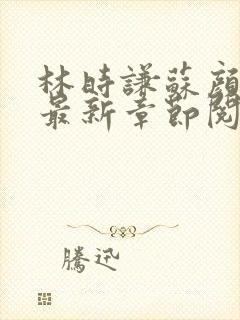 林時謙蘇顏
最新章節閱
騰迅